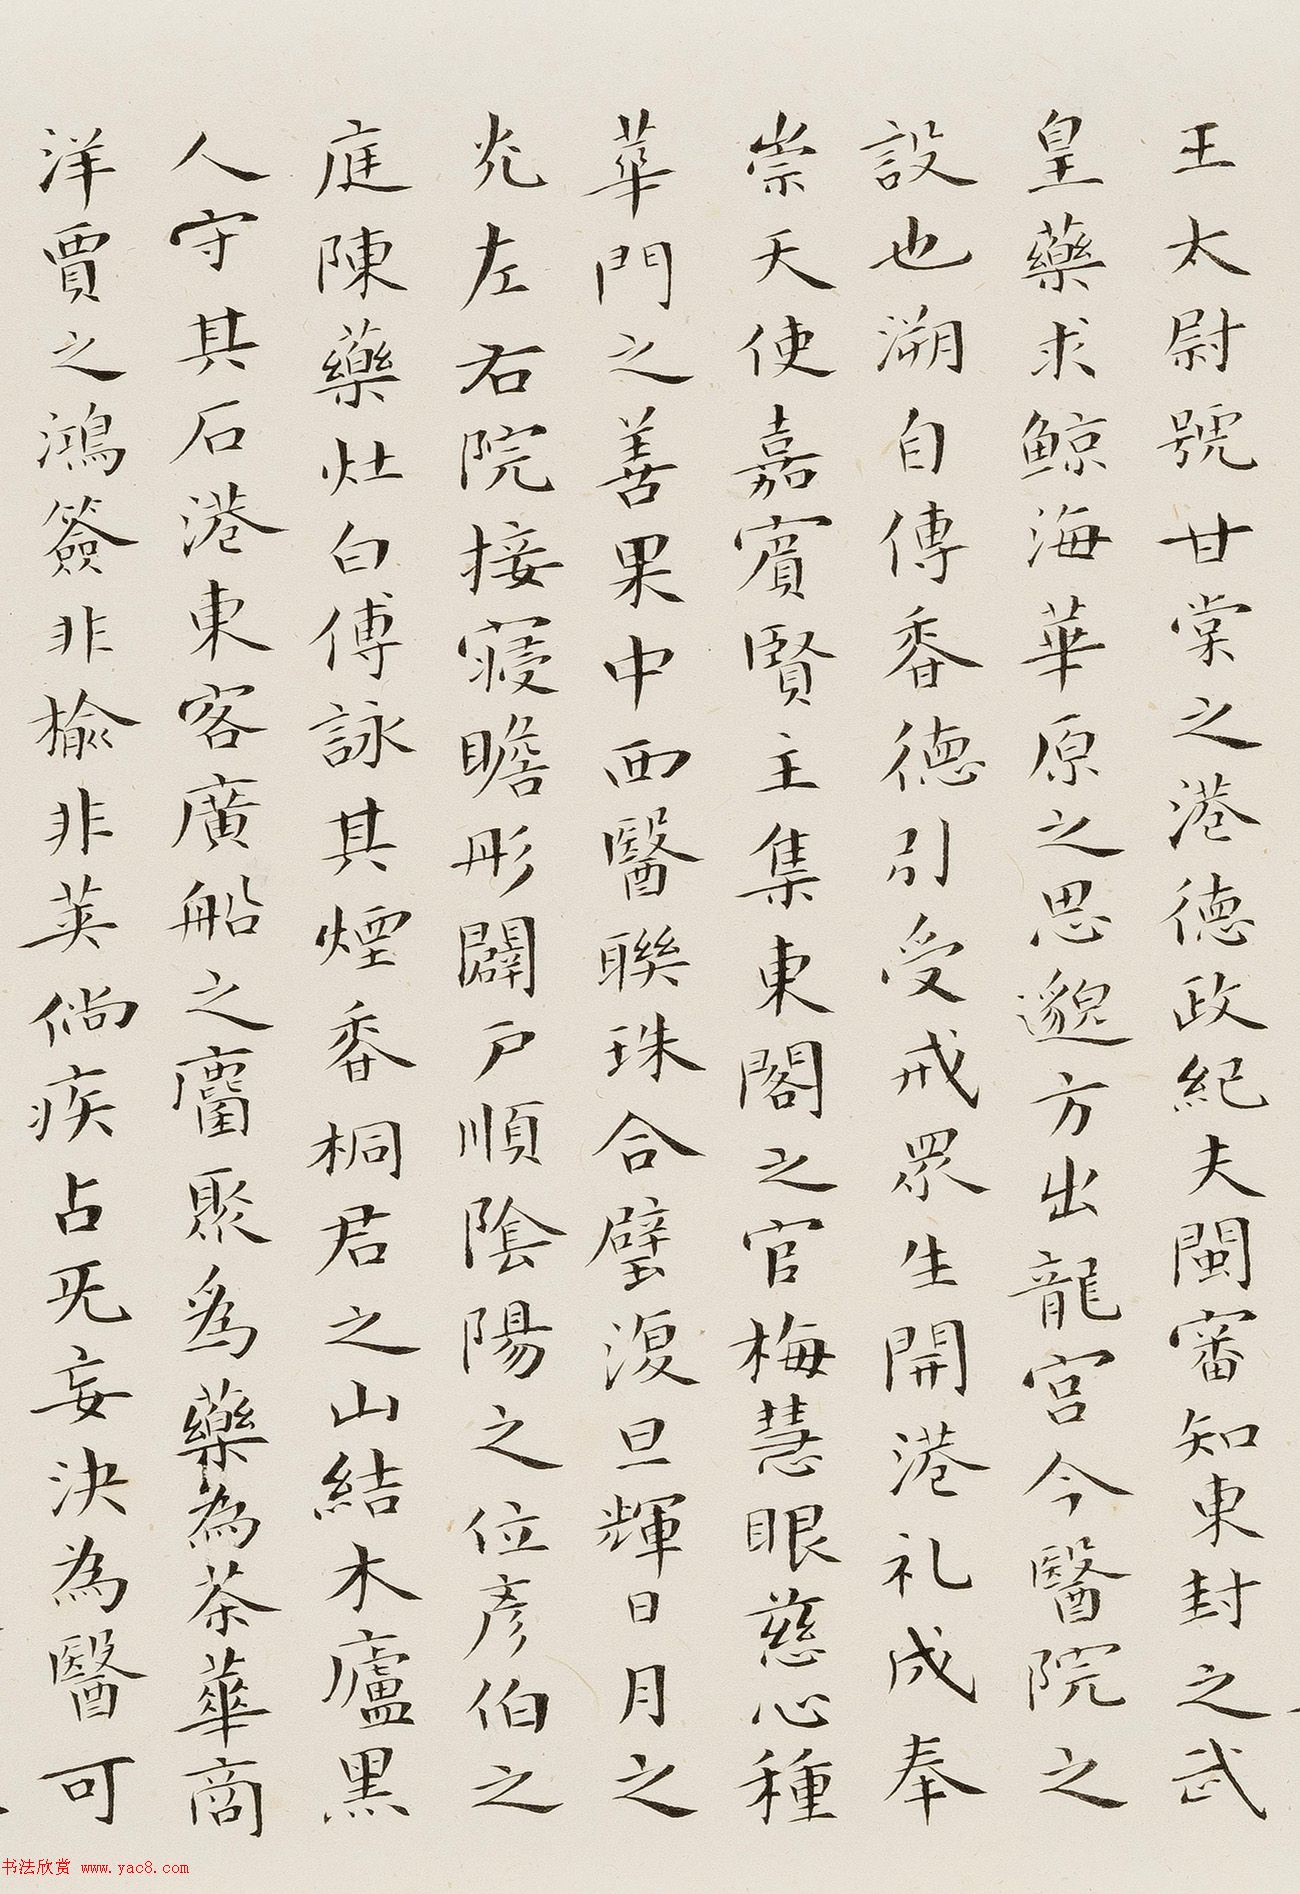 王太尉號甘棠之港德政紀夫閩審知東封之武
皇藥求鯨海華原之思邈方出龍宮今醫院之
設也溯自傳香德引受戒眾生開港礼成奉
崇天使嘉賓賢主集東閣之官梅慧眼慈心種
華門之善果中西醫聯珠合璧復旦輝日月之
光左右院接寢瞻彤闢戶順陰陽之位彥伯之
庭陳藥灶白傅詠其煙香桐君之山結木廬黑
人守其石港東客廣船之麕聚爲藥為茶華商
洋賈之鴻簽非榆非莢倘疾占旡妄決為醫可
书法欣赏 www.yac8.com